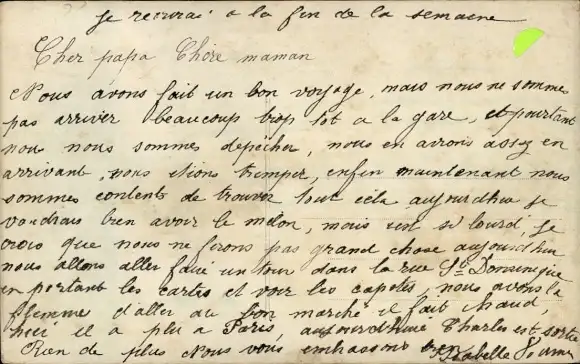 Je récrirai a la fin de la semaine
Cher papa Chère maman
Nous avons fait un bon voyage, mais nous ne sommes
pas arriver beaucoup trop tot a la gare, et pourtant
nou nous sommes depécher, nous en avons assez en
arrivant, nous étions tremper, enfin maintenant nous
sommes contents de trouver tout céla aujourdhui je
voudrais bien avoir le mélon, mais est si lourd, Je
crois que nous ne ferons pas grand chose aujourd'hui
nous allons aller faire un tour dans la rue St Dominique
en portant les cartes et voir les capotes, nous avons la
flemme d'aller au bon marché il fait chaud,
hier il a plu a Paris, aujourdhui Charles est sortie
Rien de plus Nous vous embrassons bien
Isabelle